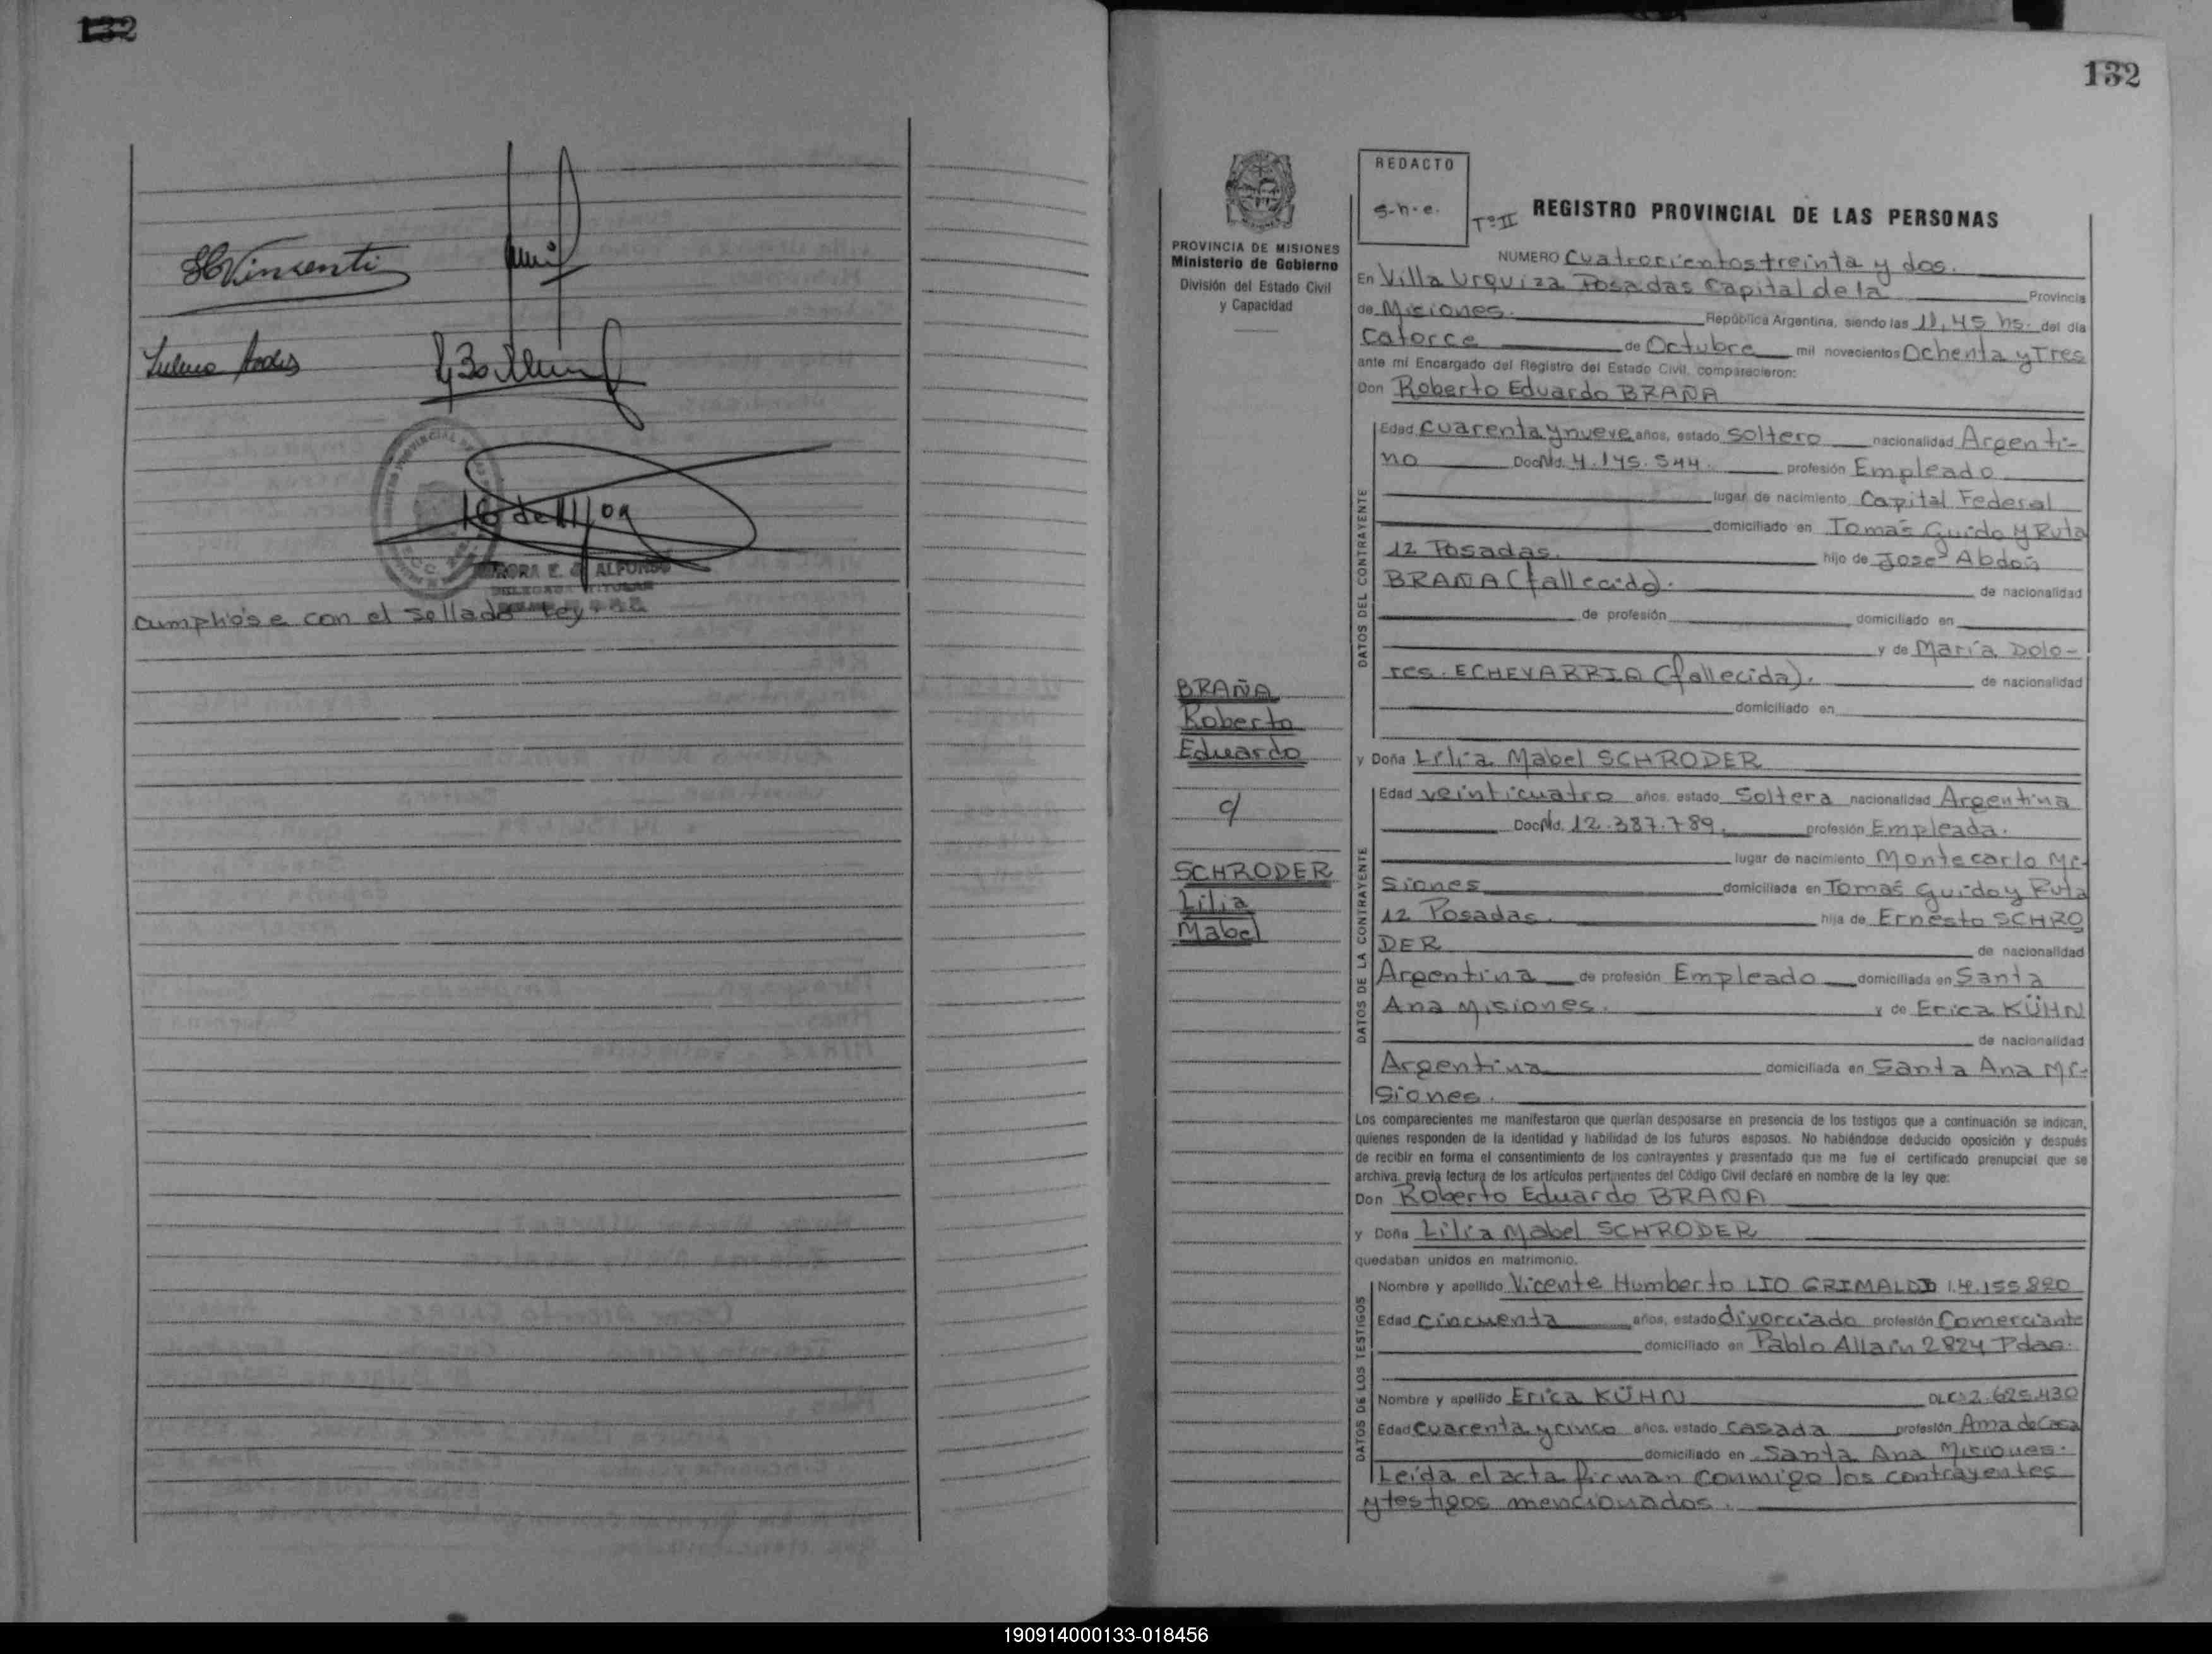 132
Cumplióse con el sellado Ley
132
REDACTO
S-h-e.
Tº II
REGISTRO PROVINCIAL DE LAS PERSONAS
PROVINCIA DE MISIONES
Ministerio de Gobierno
División del Estado Civil
y Capacidad
NUMERO Cuatrocientos treinta y dos.
En Villa Urquiza Posadas Capital de la Provincia
de Misiones. República Argentina, siendo las 11,45 hs. del día
Catorce de Octubre mil novecientos Ochenta y Tres
ante mí Encargado del Registro del Estado Civil, comparecieron:
Don Roberto Eduardo BRAÑA
DATOS DEL CONTRAYENTE
Edad cuarenta y nueve años, estado soltero nacionalidad Argenti-
no Doc.Nd. 4.145.544. profesión Empleado
lugar de nacimiento Capital Federal
domiciliado en Tomás Guido y Ruta
12 Posadas. hijo de José Abdón
BRAÑA (fallecido). de nacionalidad
de profesión domiciliado en
y de María Dolo-
res. ECHEVARRIA (fallecida). de nacionalidad
domiciliado en
BRAÑA
Roberto
Eduardo
c/
SCHRODER
Lilia
Mabel
y Doña Lilia Mabel SCHRODER
DATOS DE LA CONTRAYENTE
Edad veinticuatro años, estado Soltera nacionalidad Argentina
Doc.Nd. 12.387.789. profesión Empleada.
lugar de nacimiento Montecarlo Mi-
siones domiciliada en Tomás Guido y Ruta
12 Posadas. hija de Ernesto SCHRO
DER de nacionalidad
Argentina de profesión Empleado domiciliada en Santa
Ana Misiones. y de Erica KÜHN
de nacionalidad
Argentina domiciliada en Santa Ana Mi-
siones.
Los comparecientes me manifestaron que querían desposarse en presencia de los testigos que a continuación se indican,
quienes responden de la identidad y habilidad de los futuros esposos. No habiéndose deducido oposición y después
de recibir en forma el consentimiento de los contrayentes y presentado que me fue el certificado prenupcial que se
archiva, previa lectura de los artículos pertinentes del Código Civil declaré en nombre de la ley que:
Don Roberto Eduardo BRAÑA
y Doña Lilia Mabel SCHRODER
quedaban unidos en matrimonio.
DATOS DE LOS TESTIGOS
Nombre y apellido Vicente Humberto LIO GRIMALDI I.4.155.820
Edad cincuenta años, estado divorciado profesión Comerciante
domiciliado en Pablo Allaín 2824 Pdas.
Nombre y apellido Erica KÜHN 2.625.430
Edad cuarenta y cinco años, estado casada profesión Ama de Casa
domiciliado en Santa Ana Misiones.
Leída el acta firman conmigo los contrayentes
y testigos mencionados.
190914000133-018456